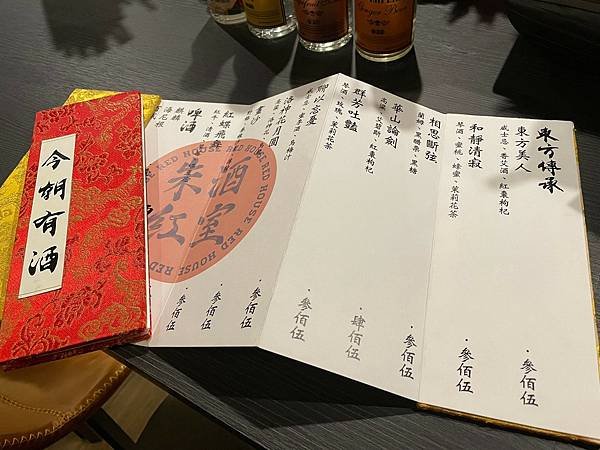 今朝有酒
東方傳承
東方美人
威士忌、香艾酒、紅棗枸杞
·參佰伍
和靜清寂
琴酒、蜜桃、蜂蜜、茉莉花茶
·參佰伍
相思斷弦
蘭姆、黑醋栗、黑糖
·參佰伍
華山論劍
高粱、艾碧斯、紅棗枸杞
·肆佰伍
群芳吐豔
琴酒、玫瑰、茉莉花茶
·參佰伍
聊以忘憂
洛神花月圓
·參佰伍
紅蝶飛舞
·參佰伍
啤酒
麒麟
海尼根
·參佰伍
朱酒
紅室
RED HOUSE RED HOUSE RED HOUSE
Ginger Beer